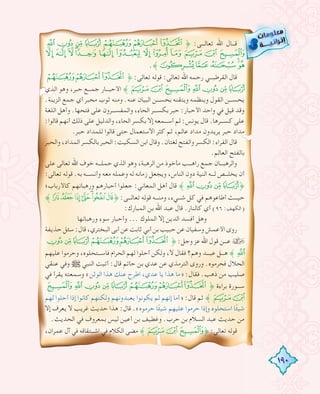 معلومات إثرائية
قال الله تعالى: ﴿ اتَّخَذُوا أَحْبَارَهُمْ وَرُهْبَانَهُمْ أَرْبَابًا مِّن دُونِ اللَّهِ
وَالْمَسِيحَ ابْنَ مَرْيَمَ وَمَا أُمِرُوا إِلَّا لِيَعْبُدُوا إِلَٰهًا وَاحِدًا لَّا إِلَٰهَ إِلَّا
هُوَ سُبْحَانَهُ عَمَّا يُشْرِكُونَ ﴾.
قال القرطبي رحمه الله تعالى: قوله تعالى: ﴿ اتَّخَذُوا أَحْبَارَهُمْ وَرُهْبَانَهُمْ
أَرْبَابًا مِّن دُونِ اللَّهِ وَالْمَسِيحَ ابْنَ مَرْيَمَ ﴾ الأحبار جمع حبر، وهو الذي
يحسن القول وينظمه ويتقنه بحسن البيان عنه. ومنه ثوب محبر أي جمع الزينة.
وقد قيل في واحد الأحبار: حبر بكسر الحاء، والمفسرون على فتحها. وأهل اللغة
على كسرها. قال يونس: لم أسمعه إلا بكسر الحاء، والدليل على ذلك أنهم قالوا:
مداد حبر يريدون مداد عالم، ثم كثر الاستعمال حتى قالوا للمداد حبر.
قال الفراء: الكسر والفتح لغتان. وقال ابن السكيت: الحبر بالكسر المداد، والحبر
بالفتح العالم.
والرهبان جمع راهب مأخوذ من الرهبة، وهو الذي حمله خوف الله تعالى على
أن يخلص له النية دون الناس، ويجعل زمانه له وعمله معه وأنسه به. قوله تعالى:
﴿ أَرْبَابًا مِّن دُونِ اللَّهِ ﴾ قال أهل المعاني: جعلوا أحبارهم ورهبانهم كالأرباب
حيث أطاعوهم في كل شيء، ومنه قوله تعالى: ﴿ قَالَ انفُخُوا حَتَّىٰ إِذَا جَعَلَهُ نَارًا ﴾
(الكهف: ٩٦) أي كالنار. قال عبد الله بن المبارك:
وهل أفسد الدين إلا الملوك ... وأحبار سوء ورهبانها
روى الأعمش وسفيان عن حبيب بن أبي ثابت عن أبي البختري، قال: سئل حذيفة
عن قول الله عز وجل: ﴿ اتَّخَذُوا أَحْبَارَهُمْ وَرُهْبَانَهُمْ أَرْبَابًا مِّن دُونِ
اللَّهِ ﴾ هل عبدوهم؟ فقال لا، ولكن أحلوا لهم الحرام فاستحلوه، وحرموا عليهم
الحلال فحرموه. وروى الترمذي عن عدي بن حاتم قال: أتيت النبي ﷺ وفي عنقي
صليب من ذهب. فقال: «ما هذا يا عدي، اطرح عنك هذا الوثن» وسمعته يقرأ في
سورة براءة ﴿ اتَّخَذُوا أَحْبَارَهُمْ وَرُهْبَانَهُمْ أَرْبَابًا مِّن دُونِ اللَّهِ وَالْمَسِيحَ
ابْنَ مَرْيَمَ ﴾ ثم قال: «أما إنهم لم يكونوا يعبدونهم ولكنهم كانوا إذا أحلوا لهم
شيئًا استحلوه وإذا حرموا عليهم شيئًا حرموه». قال: هذا حديث غريب لا يعرف إلا
من حديث عبد السلام بن حرب. وغطيف بن أعين ليس بمعروف في الحديث.
قوله تعالى: ﴿ وَالْمَسِيحَ ابْنَ مَرْيَمَ ﴾ مضى الكلام في اشتقاقه في آل عمران،
١٩٠